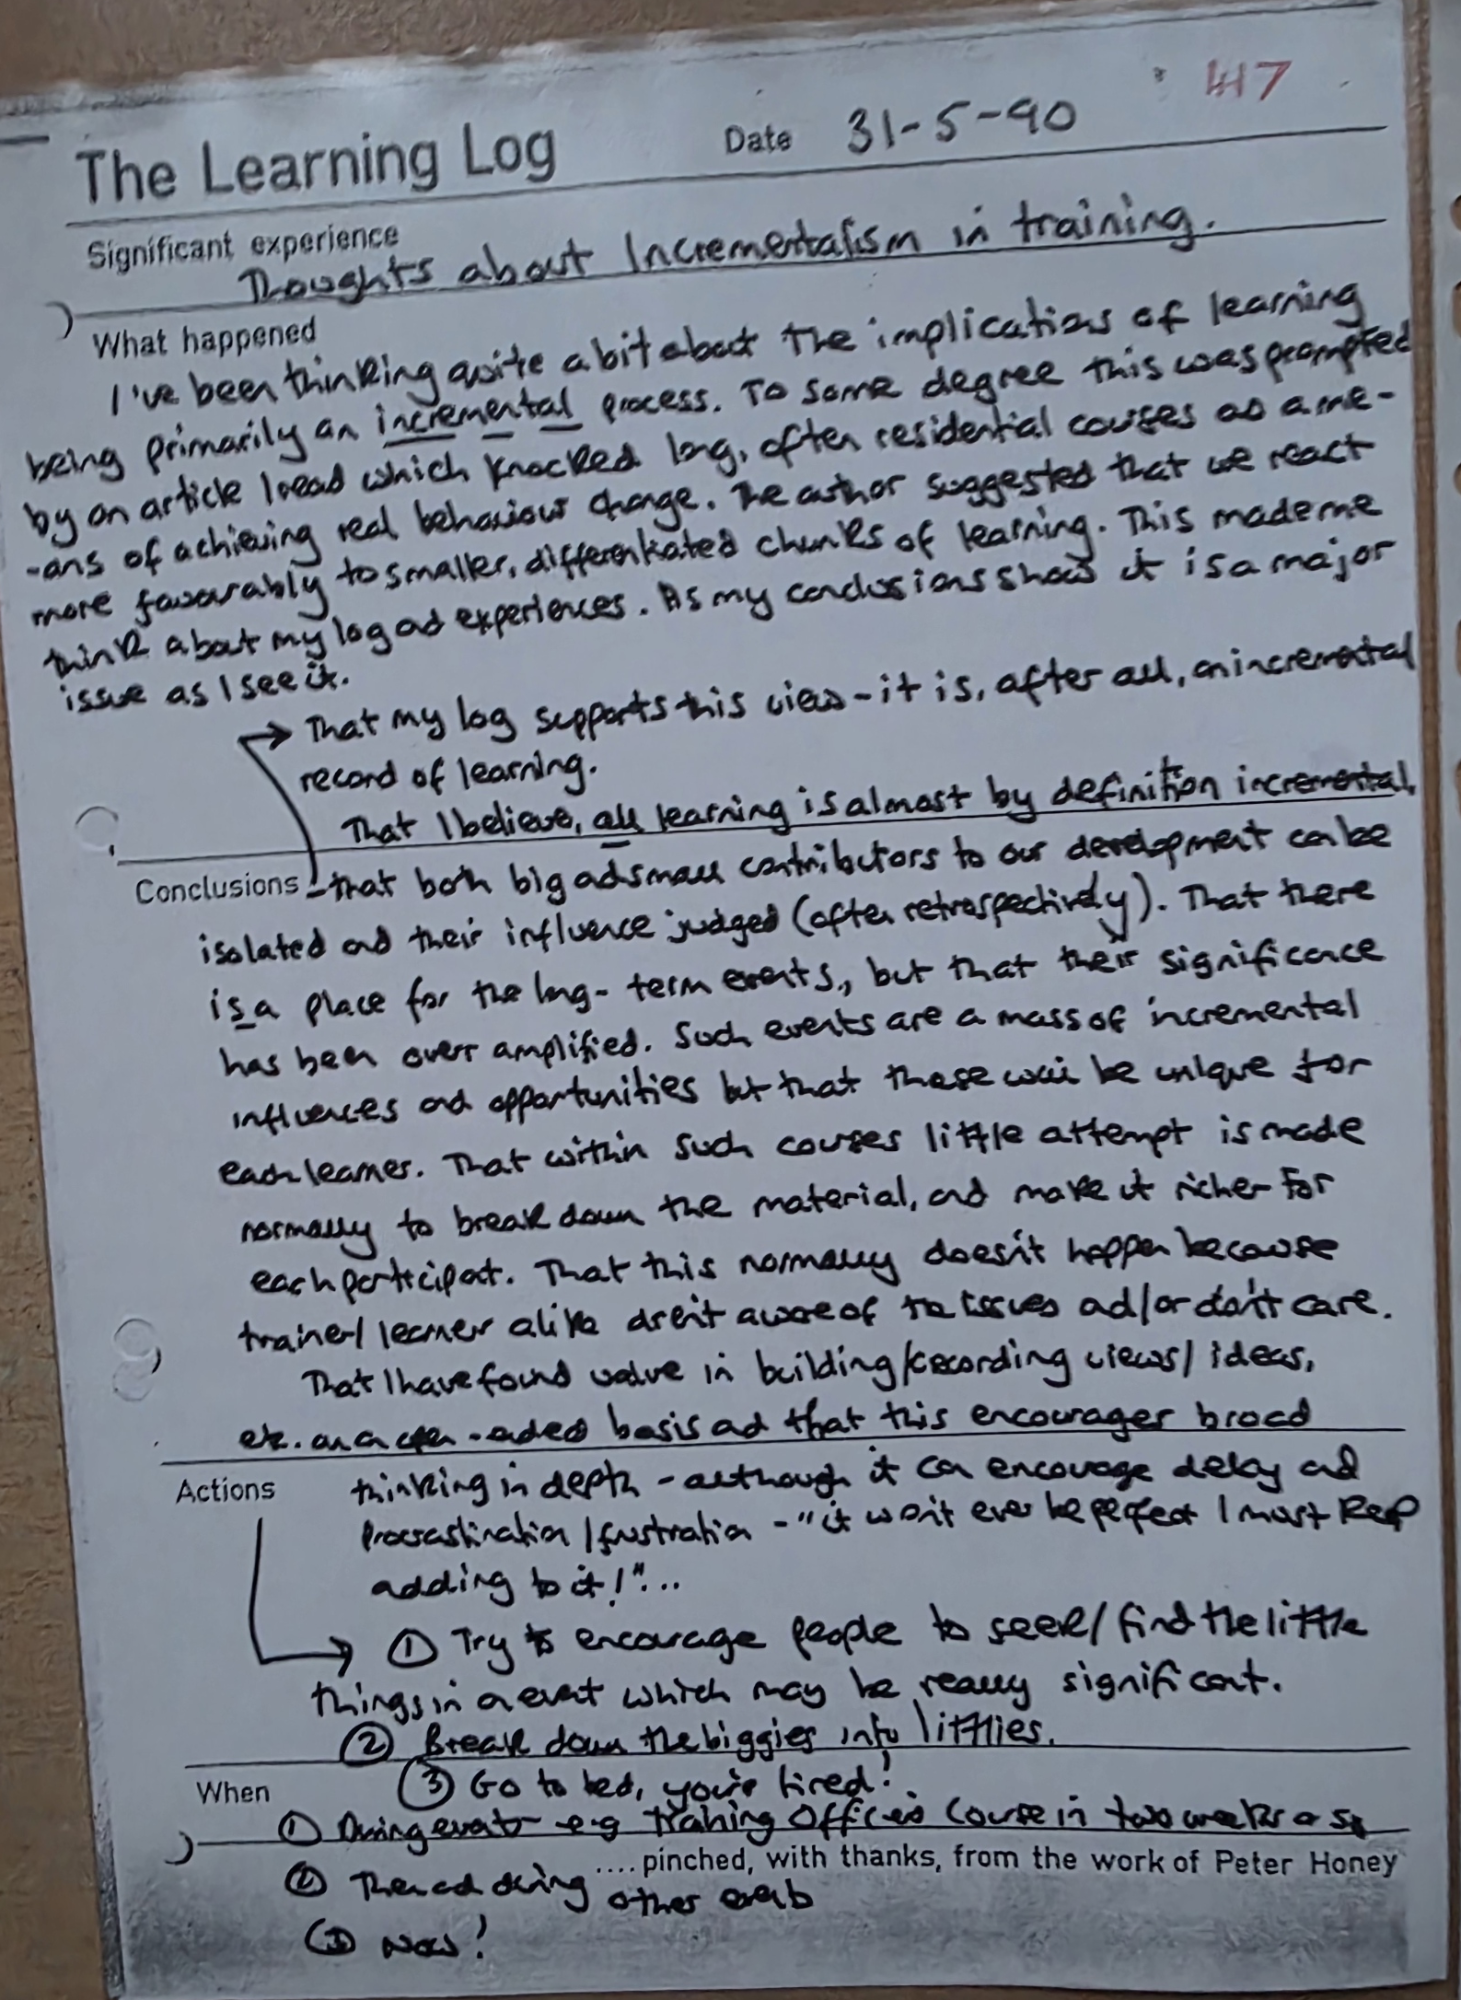 417
The Learning Log Date 31-5-90
Significant experience
Thoughts about Incrementalism in training.
What happened
I've been thinking quite a bit about the implications of learning
being primarily an incremental process. To some degree this was prompted
by an article I read which knocked long, often residential courses as a me-
-ans of achieving real behaviour change. The author suggested that we react
more favourably to smaller, differentiated chunks of learning. This made me
think about my log and experiences. As my conclusions show it is a major
issue as I see it.
→ That my log supports this view - it is, after all, an incremental
record of learning.
That I believe, all learning is almost by definition incremental,
Conclusions - that both big and small contributors to our development can be
isolated and their influence judged (often retrospectively). That there
is a place for the long-term events, but that their significance
has been over amplified. Such events are a mass of incremental
influences and opportunities but that these will be unique for
each learner. That within such courses little attempt is made
normally to break down the material, and make it richer for
each participant. That this normally doesn't happen because
trainer/learner alike aren't aware of the issues and/or don't care.
That I have found value in building/recording views/ideas,
etc. on an open-ended basis and that this encourages broad
Actions thinking in depth - although it can encourage delay and
procrastination/frustration - "it won't ever be perfect I must keep
adding to it!"...
→ ① Try to encourage people to seek/find the little
things in an event which may be really significant.
② Break down the biggies into littlies.
When ③ Go to bed, you're tired!
① During events e.g Training Officers Course in two weeks or so
....pinched, with thanks, from the work of Peter Honey
② Then and during other events
③ Now!